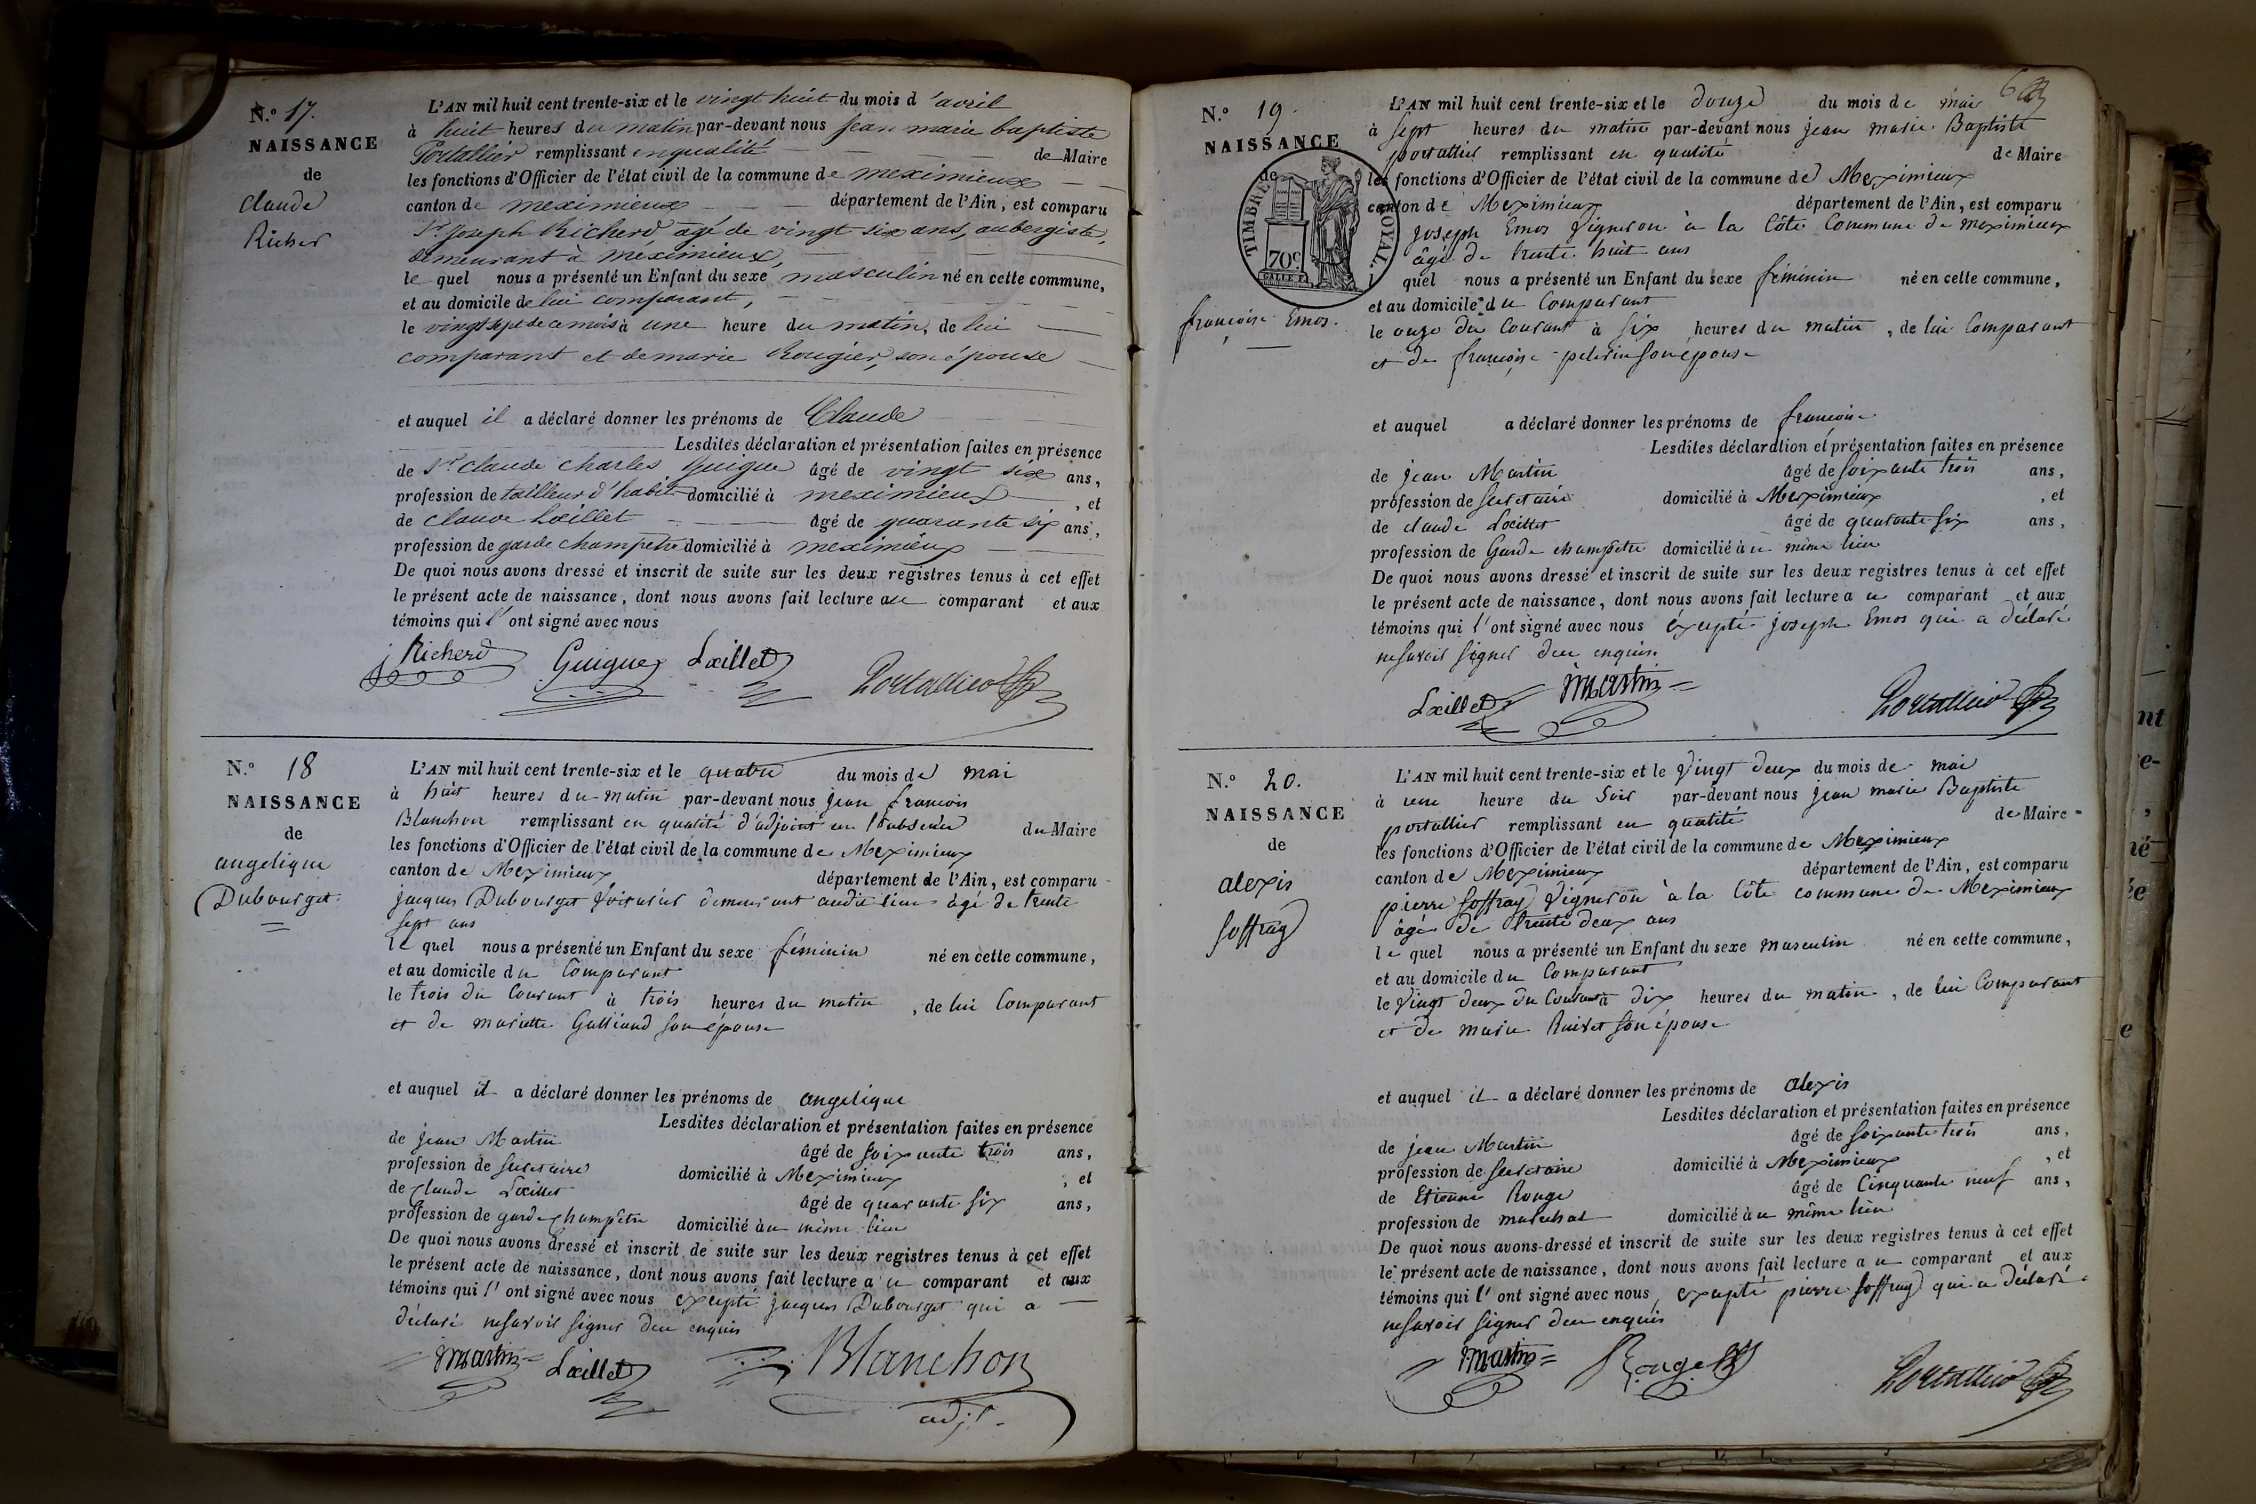 N.° 17.
NAISSANCE
de
Claude
Richer
L'AN mil huit cent trente-six et le vingt huit du mois d'avril
à huit heures du matin par-devant nous jean marie baptiste
Portallier remplissant en qualité de Maire
les fonctions d'Officier de l'état civil de la commune de meximieux
canton de meximieux département de l'Ain, est comparu
Sr joseph Richerd agé de vingt six ans, aubergiste,
demeurant à meximieux,
le quel nous a présenté un Enfant du sexe masculin né en cette commune,
et au domicile de lui comparant,
le vingt sept de ce mois à une heure du matin, de lui
comparant et de marie Rougier, son épouse
et auquel il a déclaré donner les prénoms de Claude
Lesdites déclaration et présentation faites en présence
de Sr claude charles Guigue âgé de vingt six ans,
profession de tailleur d'habit domicilié à meximieux, et
de claude Loeillet âgé de quarante six ans,
profession de garde champetre domicilié à meximieux
De quoi nous avons dressé et inscrit de suite sur les deux registres tenus à cet effet
le présent acte de naissance, dont nous avons fait lecture au comparant et aux
témoins qui l'ont signé avec nous
j Richerd Guigue Loeillet Portallier
N.° 18
NAISSANCE
de
angelique
Dubourget.
L'AN mil huit cent trente-six et le quatre du mois de mai
à huit heures du matin par-devant nous jean francois
Blanchon remplissant en qualité d'adjoint en l'absence du Maire
les fonctions d'Officier de l'état civil de la commune de Meximieux
canton de Meximieux département de l'Ain, est comparu
jacques Dubourget demeurant audit lieu agé de trente
sept ans
le quel nous a présenté un Enfant du sexe féminin né en cette commune,
et au domicile du Comparant
le trois du Courant à trois heures du matin, de lui Comparant
et de mariette Galliand son épouse
et auquel il a déclaré donner les prénoms de angelique
Lesdites déclaration et présentation faites en présence
de jean Martin âgé de soixante trois ans,
profession de secretaire domicilié à Meximieux, et
de claude Loeillet âgé de quarante six ans,
profession de garde champêtre domicilié au même lieu
De quoi nous avons dressé et inscrit de suite sur les deux registres tenus à cet effet
le présent acte de naissance, dont nous avons fait lecture au comparant et aux
témoins qui l'ont signé avec nous excepté jacques Dubourget qui a
déclaré ne savoir signer de ce enquis
Martin Loeillet Blanchon
adjt.
N.° 19.
NAISSANCE
de
TIMBRE ROYAL
70c.
françoise Emos.
L'AN mil huit cent trente-six et le douze du mois de mai
à sept heures du matin par-devant nous jean marie Baptiste
portallier remplissant en qualité de Maire
les fonctions d'Officier de l'état civil de la commune de Meximieux
canton de Meximieux département de l'Ain, est comparu
joseph Emos vigneron à la Côte Commune de meximieux
âgé de trente huit ans
quel nous a présenté un Enfant du sexe féminin né en cette commune,
et au domicile du Comparant
le onze du Courant à six heures du matin, de lui Comparant
et de françoise pelerin son épouse
et auquel a déclaré donner les prénoms de françoise
Lesdites déclaration et présentation faites en présence
de jean Martin âgé de soixante trois ans,
profession de secretaire domicilié à Meximieux, et
de claude Loeillet âgé de quarante six ans,
profession de Garde champêtre domicilié au même lieu
De quoi nous avons dressé et inscrit de suite sur les deux registres tenus à cet effet
le présent acte de naissance, dont nous avons fait lecture au comparant et aux
témoins qui l'ont signé avec nous excepté joseph Emos qui a déclaré
ne savoir signer de ce enquis.
Loeillet Martin Portallier
N.° 20.
NAISSANCE
de
alexis
Soffray
L'AN mil huit cent trente-six et le vingt deux du mois de mai
à une heure du soir par-devant nous jean marie Baptiste
portallier remplissant en qualité de Maire
les fonctions d'Officier de l'état civil de la commune de Meximieux
canton de Meximieux département de l'Ain, est comparu
pierre Soffray vigneron à la Côte commune de Meximieux
âgé de trente deux ans
le quel nous a présenté un Enfant du sexe masculin né en cette commune,
et au domicile du Comparant
le vingt deux du Courant à dix heures du matin, de lui Comparant
et de marie Ruivet son épouse
et auquel il a déclaré donner les prénoms de alexis
Lesdites déclaration et présentation faites en présence
de jean Martin âgé de soixante trois ans,
profession de secretaire domicilié à Meximieux, et
de Etienne Ronge âgé de Cinquante neuf ans,
profession de marechal domicilié au même lieu
De quoi nous avons dressé et inscrit de suite sur les deux registres tenus à cet effet
le présent acte de naissance, dont nous avons fait lecture au comparant et aux
témoins qui l'ont signé avec nous, excepté pierre Soffray qui a déclaré
ne savoir signer de ce enquis
Martin Ronge Portallier